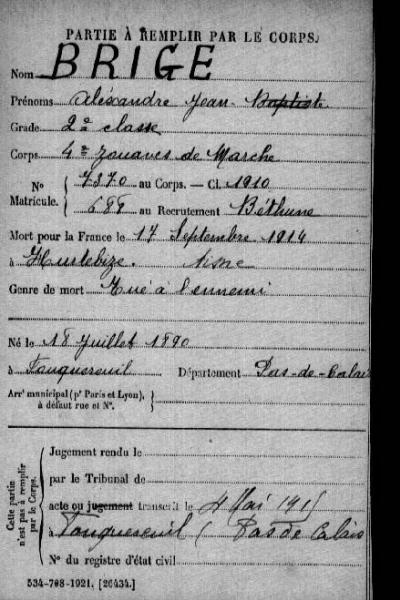 PARTIE À REMPLIR PAR LE CORPS.
Nom BRIGE
Prénoms Aléxandre Jean-Baptiste
Grade 2e classe
Corps 4e Zouaves de Marche
N° Matricule. { 7370 au Corps. — Cl. 1910
689 au Recrutement Béthune
Mort pour la France le 17 Septembre 1914
à Hurtebize. Aisne
Genre de mort Tué à l'ennemi
Né le 18 Juillet 1890
à Fouquereuil Département Pas-de-Calais
Arrt municipal (pr Paris et Lyon), à défaut rue et N°. {
Cette partie n'est pas à remplir par le Corps. { Jugement rendu le
par le Tribunal de
acte ou jugement transcrit le 4 Mai 1915
à Fouquereuil (Pas de Calais
N° du registre d'état civil
534-708-1921. [26434.]